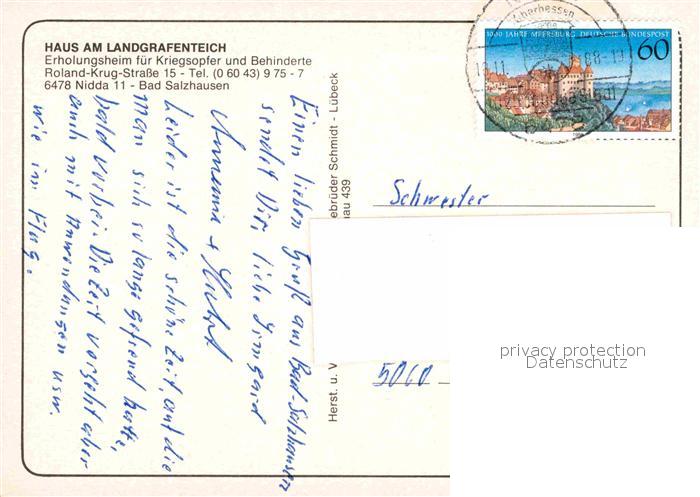 HAUS AM LANDGRAFENTEICH
Erholungsheim für Kriegsopfer und Behinderte
Roland-Krug-Straße 15 - Tel. (0 60 43) 9 75 - 7
6478 Nidda 11 - Bad Salzhausen
Einen lieben Gruß aus Bad-Salzhausen
sendet Dir, liebe Irmgard
Annemie +
Leider ist die schöne Zeit, auf die
man sich so lange gefreut hatte,
bald vorbei. Die Zeit vergeht aber
auch mit Anwendungen usw.
wie im Flug.
ebrüder Schmidt - Lübeck
au 439
Herst. u. V
1000 JAHRE MEERSBURG DEUTSCHE BUNDESPOST
60
Oberhessen
Schwester
5060
privacy protection
Datenschutz